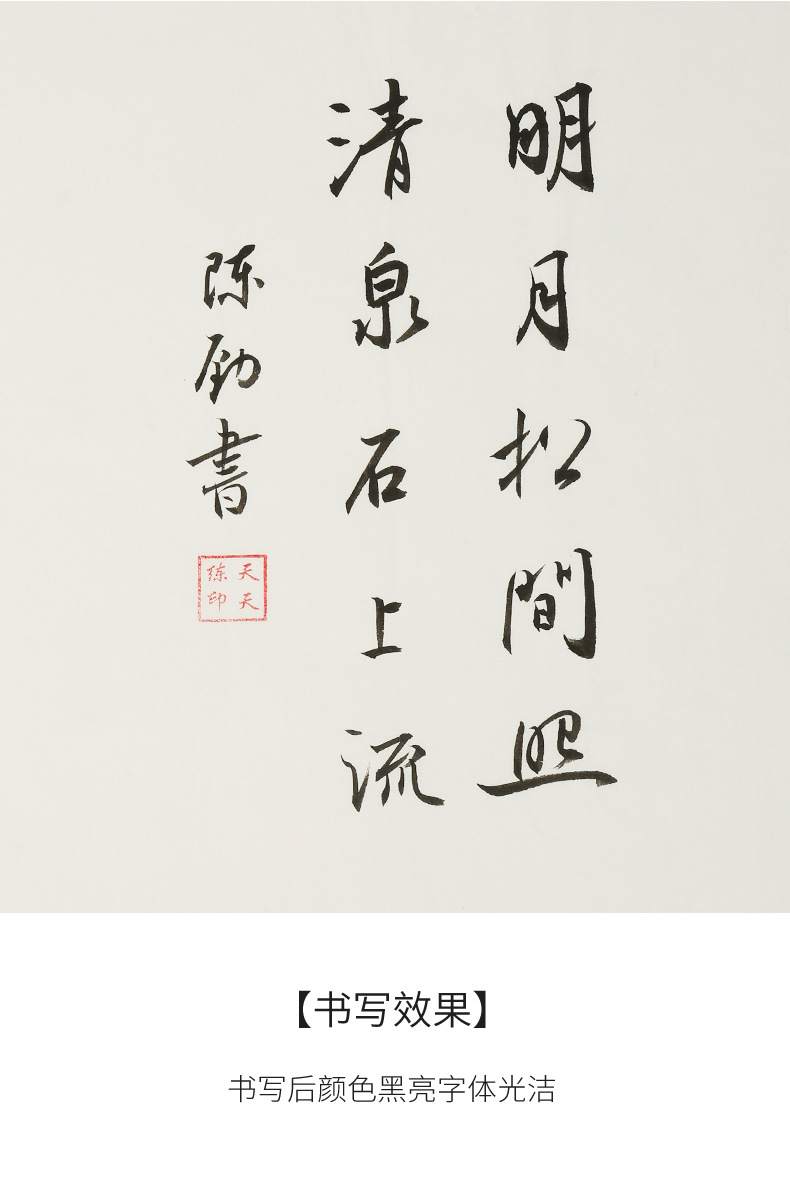 明月松間照
清泉石上流
陈励書
天天
练印
【书写效果】
书写后颜色黑亮字体光洁